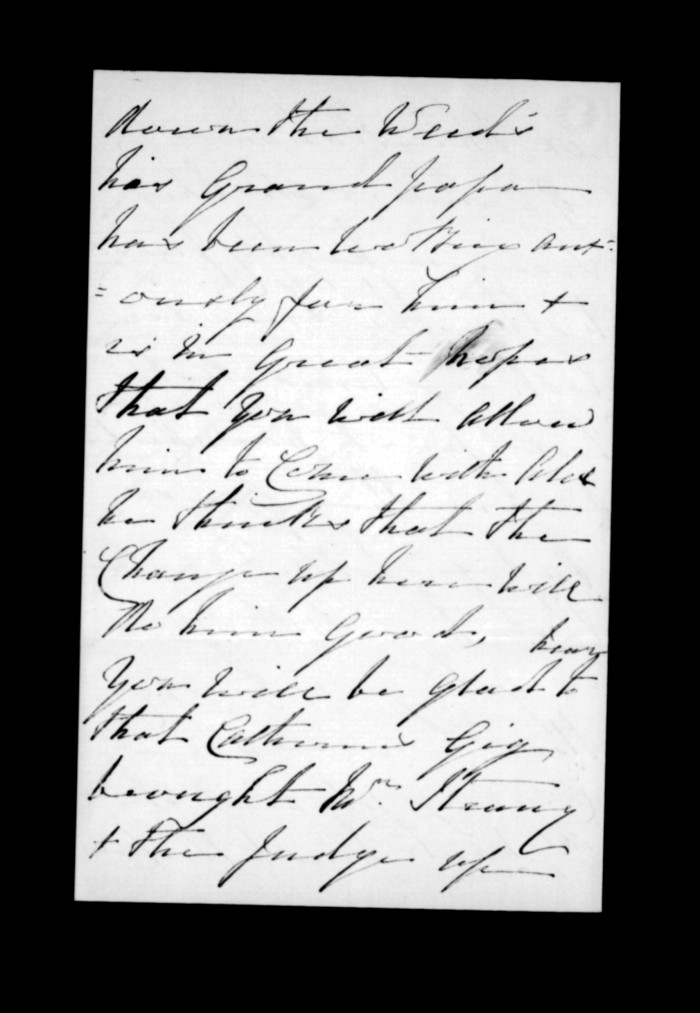 down the
his Grand papa
has been looking anx:
=ously for him +
is in great hopes
that you will allow
him to come with Alex
he thinks that the
Change up here will
do him good,
hear
you will be glad to
that Catherines Gig
brought Mr. Strang
+ the Judge up